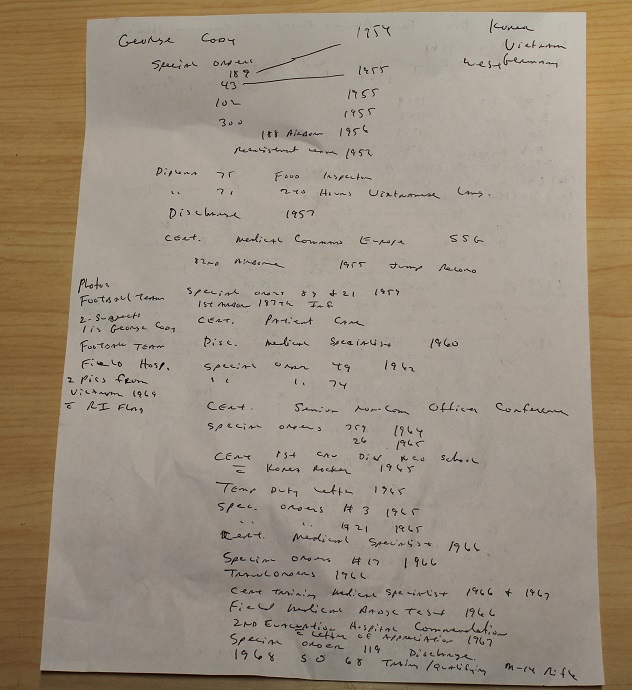 George Cody 1954 Korea
Vietnam
West Germany
Special Orders
189
43 1955
102 1955
300 1955
188 Airborn 1956
Reenlistment Leave 1952
Diploma 75 Food Inspector
" 71 240 Hours Vietnamese Lang.
Discharge 1957
Cert. Medical Command Europe SSG
82nd Airborne 1955 Jump Record
Photos
Football Team
2-Subjects
1 is George Cody
Football Team
Field Hosp.
2 pics from
Vietnam 1964
c RI Flag
Special Orders 89 + 21 1959
1st Airbor 187th Inf
Cert. Patient Care
Disc. Medical Specialist 1960
Special Order 49 1962
" " 74
Cert. Senior Non Com Officer Conference
Special Orders 259 1964
26 1965
Cert 1st Cav Div NCO School
c Korea Rocker 1965
Temp Duty Letter 1965
Spec. Orders # 3 1965
" " # 21 1965
Cert. Medical Specialist 1966
Special Orders #17 1966
Travel Orders 1966
Cert Training Medical Specialist 1966 + 1967
Field Medical Badge Test 1966
2nd Evacuation Hospital Commendation
c Letter of Appreciation 1967
Special Order 119 Discharge
1968 SO 68 Training/Qualifying M-14 Rifle